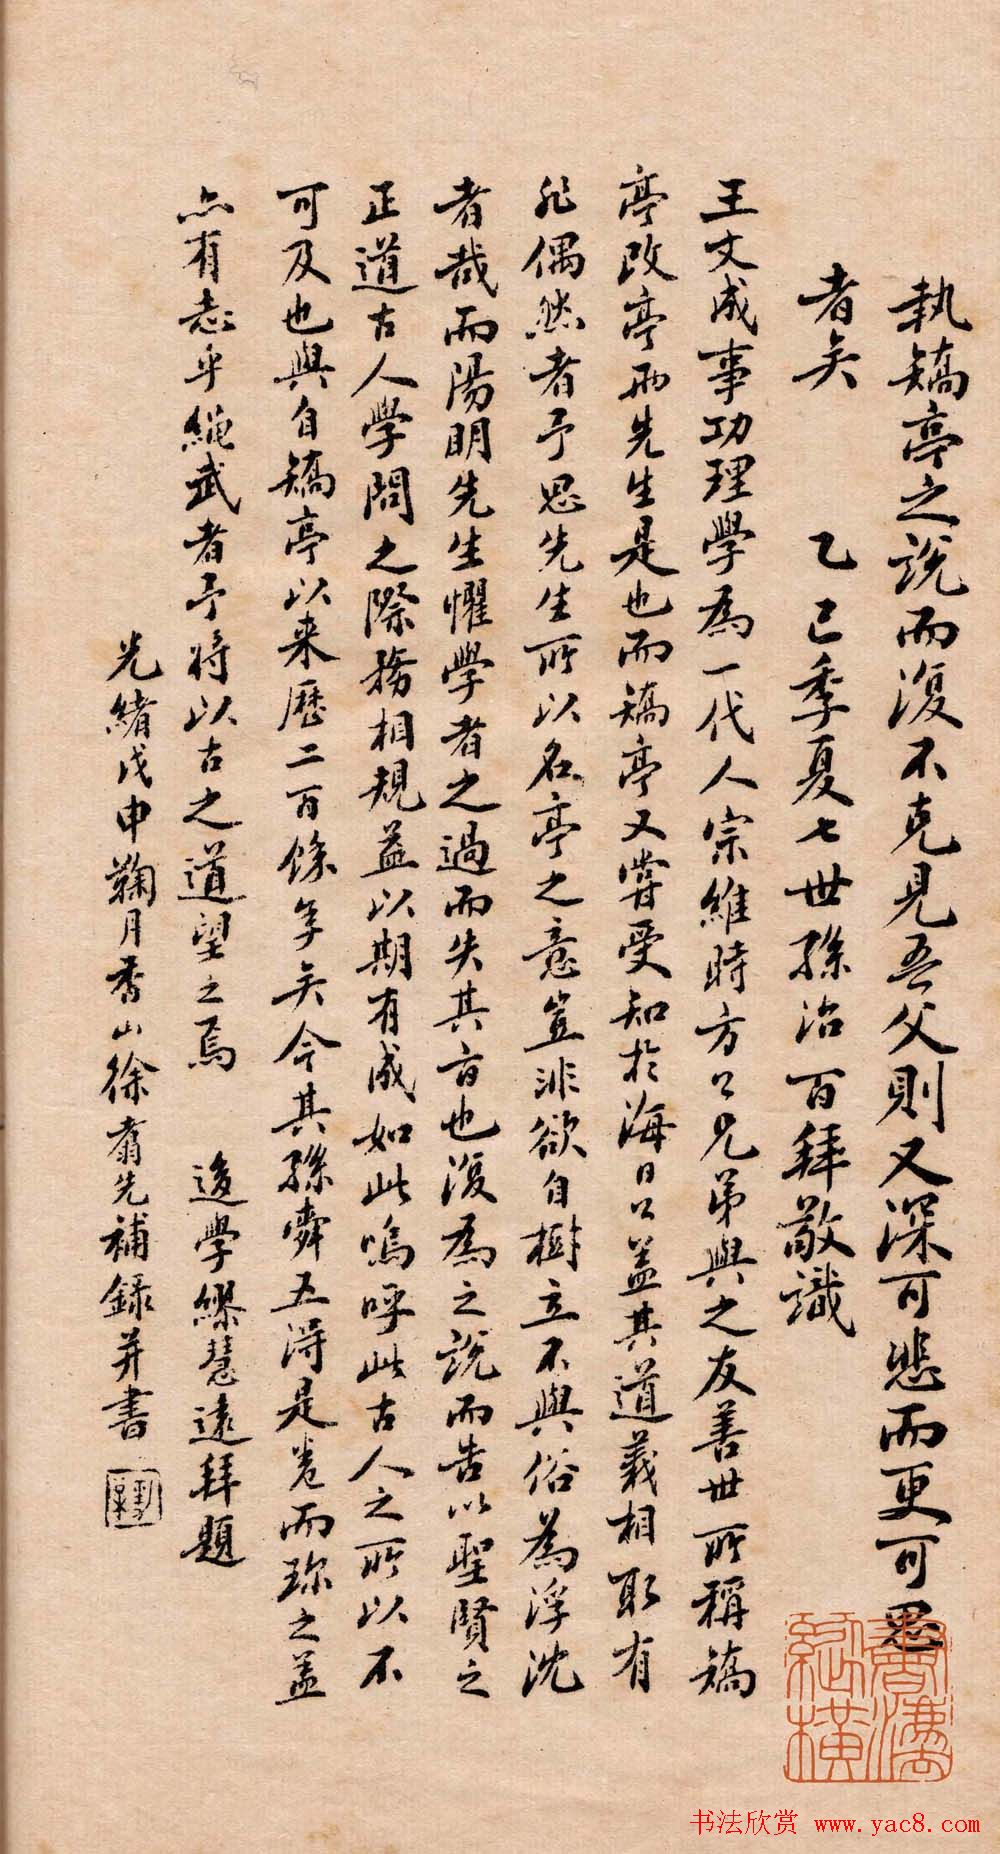 執矯亭之說而復不克見吾父則又深可悲而更可思
者矣 乙巳季夏七世孫治百拜敬識
王文成事功理學為一代人宗維時方公兄弟與之友善世所稱矯
亭改亭兩先生是也而矯亭又嘗受知於海日公蓋其道義相取有
非偶然者予思先生所以名亭之意豈非欲自樹立不與俗為浮沈
者哉而陽明先生懼學者之過而失其旨也復為之說而告以聖賢之
正道古人學問之際務相規益以期有成如此嗚呼此古人之所以不
可及也與自矯亭以來歷二百餘年矣今其孫舜五得是卷而珍之蓋
亦有志乎繩武者予將以古之道望之焉 後學繆慧遠拜題
光緒戊申鞠月香山徐翥先補錄并書
書灋縱橫
书法欣赏 www.yac8.com